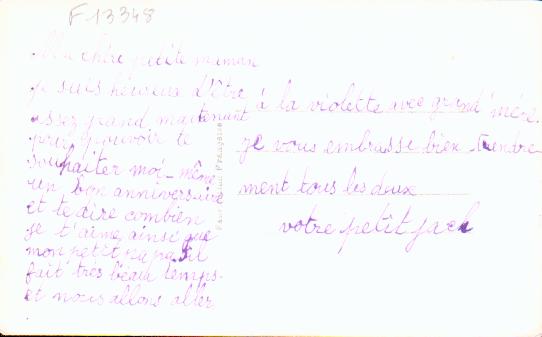 F 13348
Ma chère petite maman
je suis heureux d'être
assez grand maitenant
pour pouvoir te
souhaiter moi-même
un bon anniversaire
et te dire combien
je t'aime ainsi que
mon petit papa. Il
fait très beau temps.
et nous allons aller
à la violette avec grand'mère.
je vous embrasse bien tendre-
ment tous les deux
votre petit jack
Fabrication Française